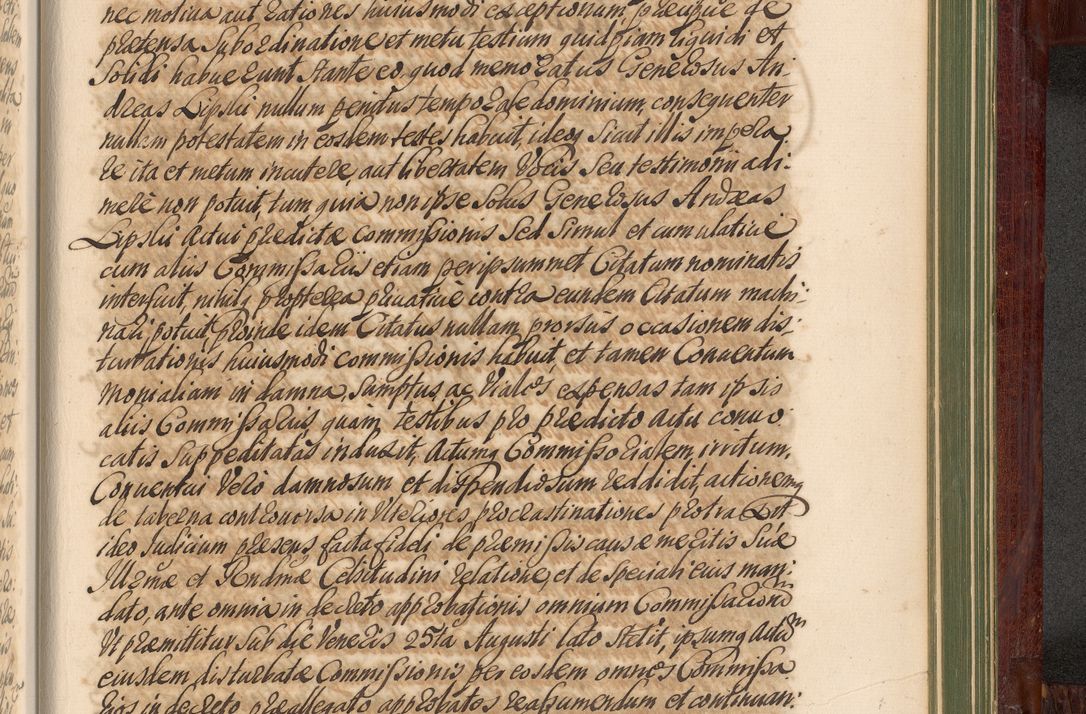 nec motiva aut rationes huiusmodi exceptionum, præcipue de
prætensa Subordinatione et metu testium quidpiam liquidi et
Solidi habuerunt stante eo, quod memoratus Generosus An-
dreas Lipski nullum penitus temporale dominium, consequenter
nullam potestatem in eosdem testes habuit, ideoq Sicut illis impera
re ita et metum incutere, aut libertatem Vocis Seu testimonii adi-
mere non potuit, tum quia non ipse Solus Generosus Andreas
Lipski Actui prædictæ commissionis Sed Simul et cumulative
cum aliis Commissariis etiam per ipsummet Citatum nominatis
interfuit, nihilq propterea privative contra eundem Citatum machi-
nari potuit, Proinde idem Citatus nullam prorsus occasionem dis-
turbationis huiusmodi commissionis habuit, et tamen Conventum
Monialium in damna, Sumptus ac Viales expensas tam ipsis
aliis Commissariis quam testibus pro prædicto actu convo
catis Suppeditatas induxit, Actumq Commissorialem, irritum,
Conventui Vero damnosum et dispendiosum reddidit, actionemq
de taberna controversa in Ulteriores procrastinationes protraxit
ideo Judicium præsens facta fideli de præmissis causæ meritis Suæ
Illrmæ et Rndmæ Celsitudini relatione, et de Speciali eius man-
dato, ante omnia in decreto approbationis omnium Commissariorū
Ut præmittitur Sub die Veneris 25ta Augusti lato Stetit, ipsumq Actum
eiusdem disturbatæ Commissionis, per eosdem omnes Commissa
rios in decreto præallegato approbatos reassumendum et continuan-